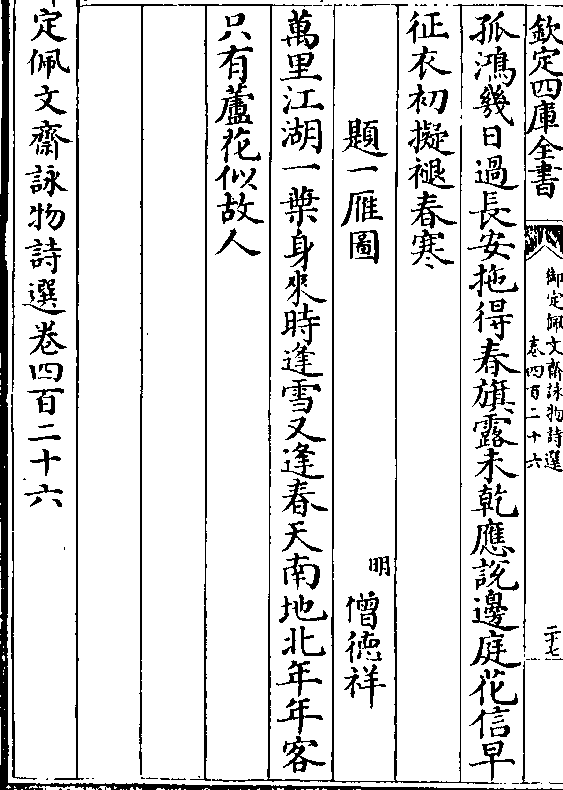 欽定四庫全書
御定佩文齋詠物詩選
卷四百二十六
二十七
孤鴻幾日過長安拖得春旗露未乾應說邊庭花信早
征衣初擬褪春寒
題一雁圖
明
僧德祥
萬里江湖一葉身來時逢雪又逢春天南地北年年客
只有蘆花似故人
定佩文齋詠物詩選卷四百二十六